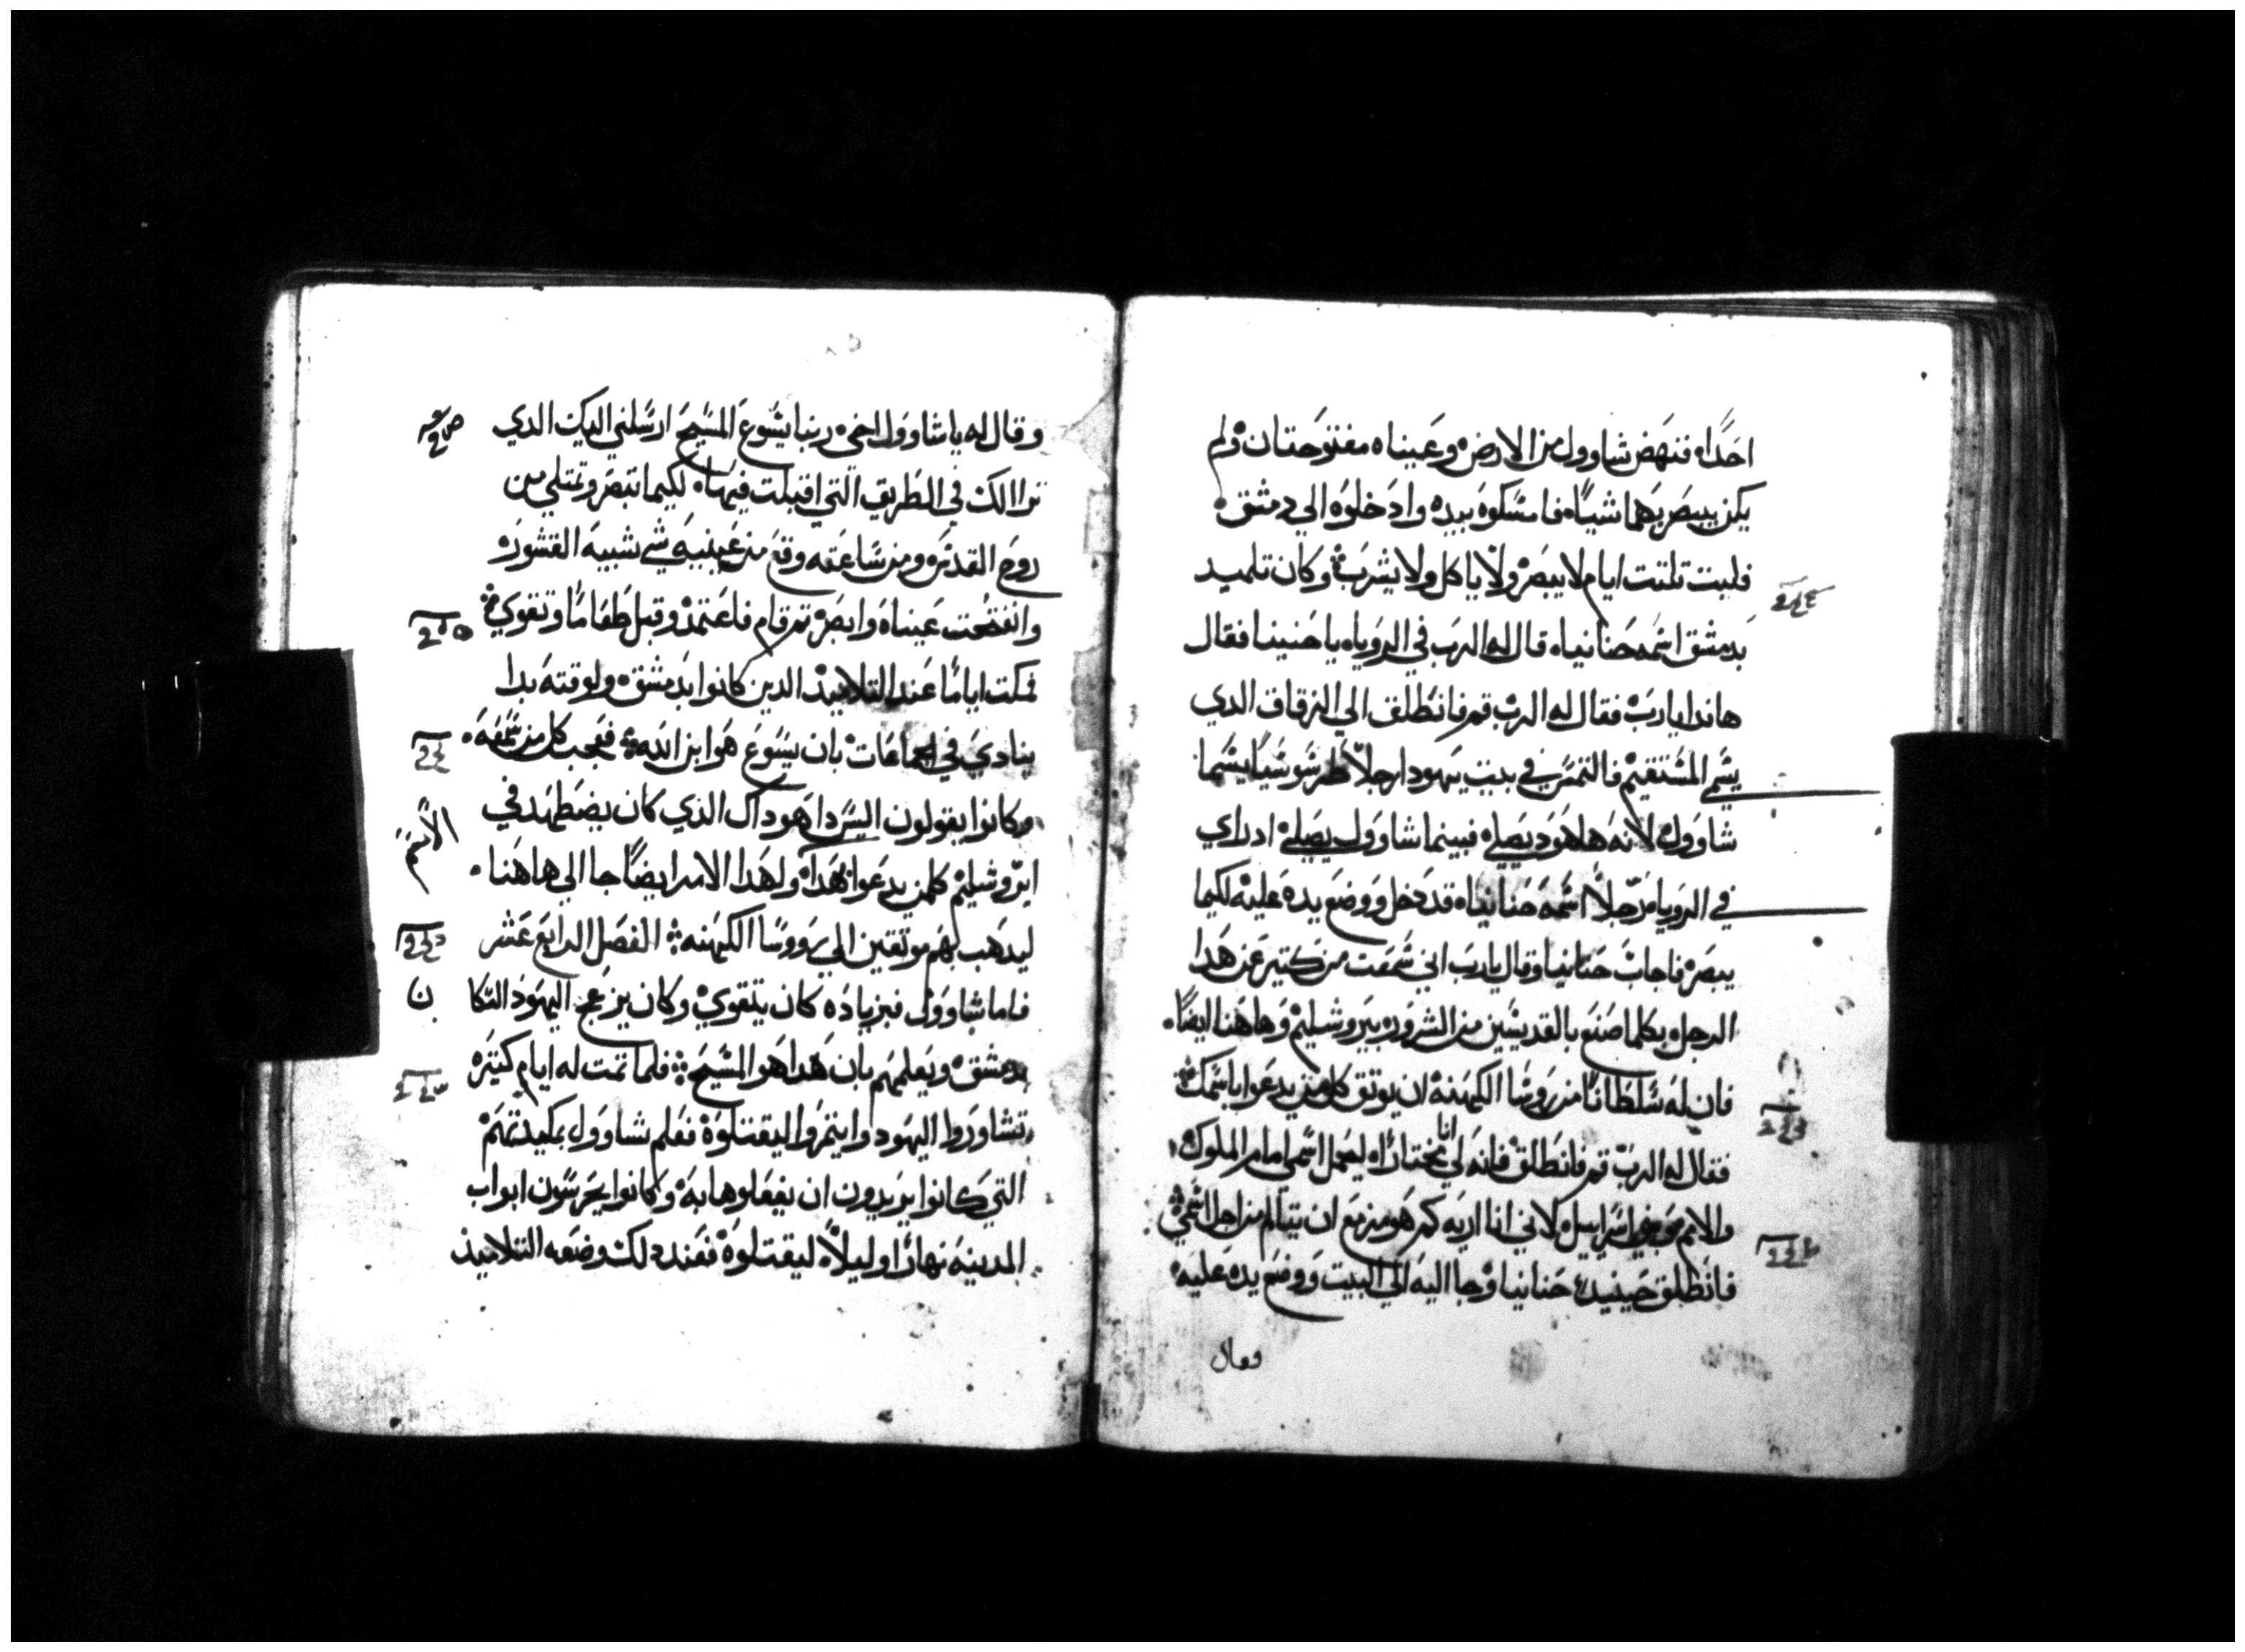 احدًا۰ فنهض شاوول من الارض۰ وعيناه مفتوحتان ولم
يكن يبصر بهما شياً۰ فامسكوه بيده وادخلوه الي دمشق۰
فلبث تلتت ايام لا يبصر ولا ياكل ولا يشرب۰ وكان تلميد
بدمشق اسمه حنانيا۰ قال له الرب في الرويا۰ يا حنينا فقال
هاندا يارب فقال له الرب قم فانطلق الي الزقاق الدي
يسمي المستقيم فالتمس في بيت يهودا رجلاً طرسوسياً يسما
شاوول لانه ها هود يصلي۰ فبينما شاوول يصلي۰ اد راي
في الرويا رجلاً اسمه حنانيا۰ قد دخل ووضع يده عليه لكيما
يبصر۰ فاجاب حنانيا وقال يارب اني سمعت من كتير عن هدا
الرجل۰ بكلما صنع بالقديسين من الشرور۰ بيروشليم وهاهنا ايضاً۰
فان له سلطاناً من روسا الكهنه ان يوتق كل من يدعوا باسمك۰
فقال له الرب قم فانطلق فانه لي انا مختاراً۰ ليحمل اسمي امام الملوك۰
والامم وبني اسراييل۰ لاني انا اريه كم هو مزمع ان يتالم من اجل اسمي۰
فانطلق حينيد حنانيا وجا اليه الي البيت ووضع يده عليه۰
وقال
وقال له يا شاوول اخي۰ ربنا يسوع المسيح ارسلني اليك الدي
تراا لك في الطريق التي اقبلت فيها۰ لكيما تبصر وتمتلي من
روح القدس۰ ومن ساعته وقع من عينيه شي شبيه القشور۰
وانفتحت عيناه وابصر۰ تم قام فاعتمد وقبل طعاماً وتقوي۰
فمكت اياماً عند التلاميد الدين كانوا بدمشق۰ ولوقته بدا
ينادي في الجماعات بان يسوع هوا بن الله۰ فعجب كل من سمعه۰
وكانوا يقولون اليس دا هود اك الذي كان يضطهد في
ايروشليم كلمن يدعوا بهدا۰ ولهدا الامر ايضاً جا الي هاهنا۰
ليدهب بهم موتقين الي رووسا الكهنه۰ الفصل الرابع عشر
فاما شاوول فبزياده كان يتقوي وكان يزعج اليهود السكا
ن
بدمشق۰ ويعلمهم بان هدا هو المسيح۰ فلما تمت له ايام كتيره
تشاوروا اليهود وايتمروا ليقتلوه فعلم شاوول بمكيدتهم
التي كانوا يريدون ان يفعلوها به۰ وكانوا يحرسون ابواب
المدينه نهاراً وليلاً ليقتلوه فعند دلك وضعه التلاميد
الاسم